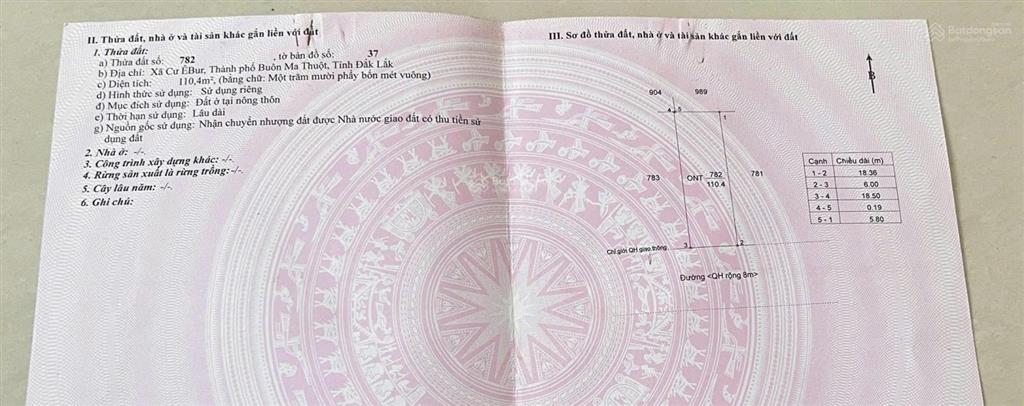 II. Thửa đất, nhà ở và tài sản khác gắn liền với đất
1. Thửa đất:
a) Thửa đất số: 782 , tờ bản đồ số: 37
b) Địa chỉ: Xã Cư ÊBur, Thành phố Buôn Ma Thuột, Tỉnh Đắk Lắk
c) Diện tích: 110,4m², (bằng chữ: Một trăm mười phẩy bốn mét vuông)
d) Hình thức sử dụng: Sử dụng riêng
đ) Mục đích sử dụng: Đất ở tại nông thôn
e) Thời hạn sử dụng: Lâu dài
g) Nguồn gốc sử dụng: Nhận chuyển nhượng đất được Nhà nước giao đất có thu tiền sử
dụng đất
2. Nhà ở: -/-.
3. Công trình xây dựng khác: -/-.
4. Rừng sản xuất là rừng trồng:-/-.
5. Cây lâu năm: -/-.
6. Ghi chú:
III. Sơ đồ thửa đất, nhà ở và tài sản khác gắn liền với đất
Batdongsan
B
904 989
4 5
1
783 ONT 782 781
110.4
3 2
Chỉ giới QH giao thông
Đường <QH rộng 8m>
Cạnh Chiều dài (m)
1 - 2 18.36
2 - 3 6.00
3 - 4 18.50
4 - 5 0.19
5 - 1 5.80